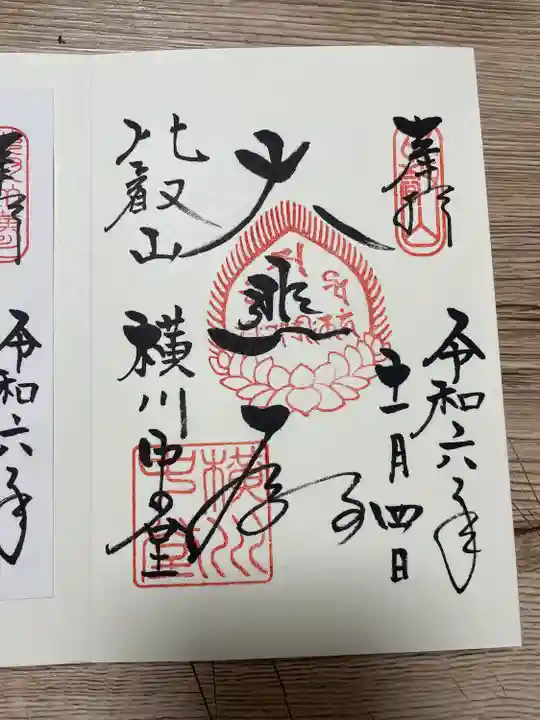 奉拝
令和六年
十一月四日
大悲殿
比叡山
横川中堂
比叡山
横川中堂
奉拝
令和六年